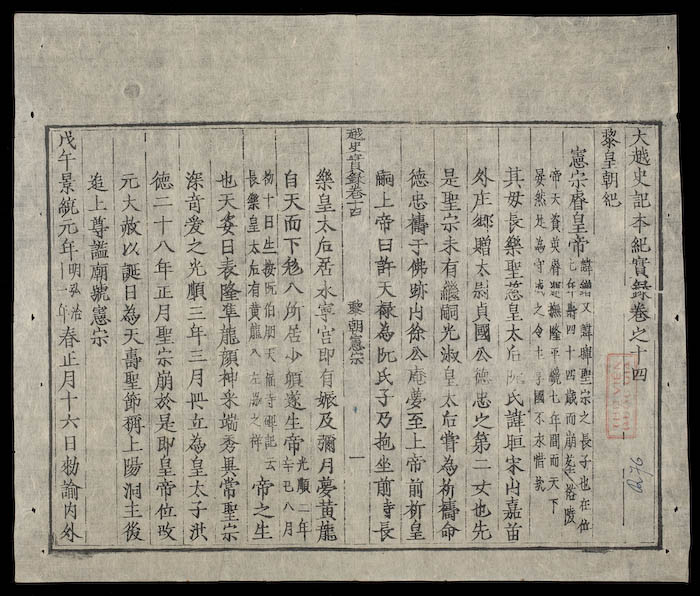 大越史記本紀實録卷之十四
黎皇朝紀
憲宗睿皇帝
諱鏳又諱暉聖宗之長子也在位
七年壽四十四歲而崩葬裕陵
帝天資英睿運撫隆平纔七年間而天下
晏然是為守成之令主享國不永惜哉
其母長樂聖慈皇太后阮氏諱晅宋山嘉苗
外庄鄉贈太尉貞國公德忠之第二女也先
是聖宗未有繼嗣光淑皇太后嘗為祈禱命
德忠禱于佛跡山徐公庵夢至上帝前祈皇
嗣上帝曰許天禄為阮氏子乃抱坐前寺長
越史實録卷十四 黎朝憲宗 一
樂皇太后居永寧宮即有娠及彌月夢黃龍
自天而下繞入所居少頃遂生帝 光順二年
辛巳八月
初十日生按阮伯朋天福寺碑記云
長樂皇太后有黃龍入左脇之祥
帝之生
也天姿日表隆準龍顏神采端秀異常聖宗
深奇愛之光順三年三月冊立為皇太子洪
德二十八年正月聖宗崩於是即皇帝位改
元大赦以誕日為天壽聖節稱上陽洞主後
追上尊謚廟號憲宗
戊午景統元年 明弘治十一年 春正月十六日勑諭内外